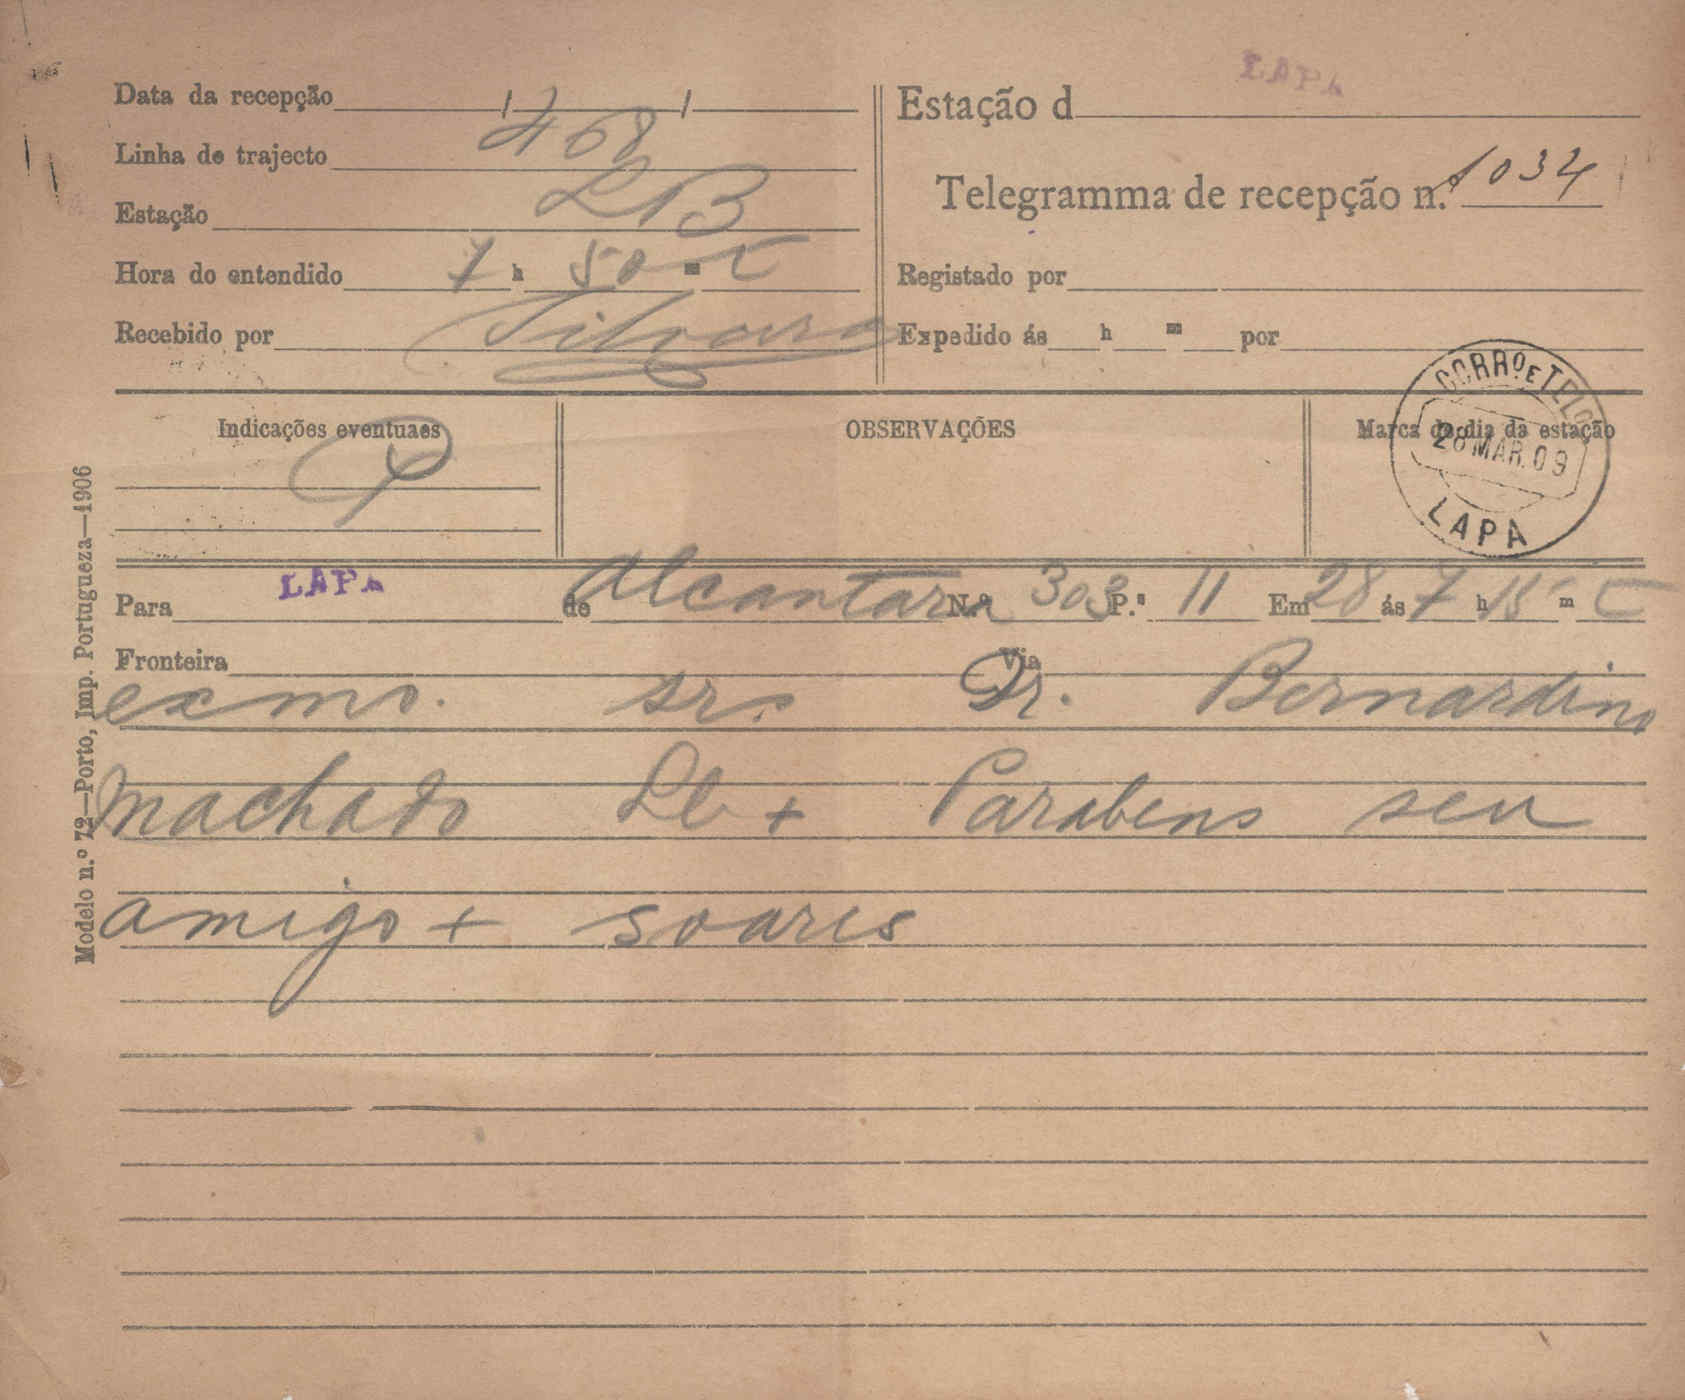 LAPA
Data da recepção / /
Estação d
Linha de trajecto 468
Telegramma de recepção n.º 1034
Estação LB
Hora do entendido 7 h 50 m t
Registado por
Recebido por
Expedido ás h m por
CORRº E TELº
28 MAR. 09
LAPA
Indicações eventuaes
OBSERVAÇÕES
Marca do dia da estação
Para LAPA de Alcantara N.º 303 P.ª 11 Em 28 ás 7 h 15 m t
Fronteira Via
exmo. sr. Dr. Bernardino
machado Lb + Parabens seu
amigo + soares
Modelo n.º 72—Porto, Imp. Portugueza—1906